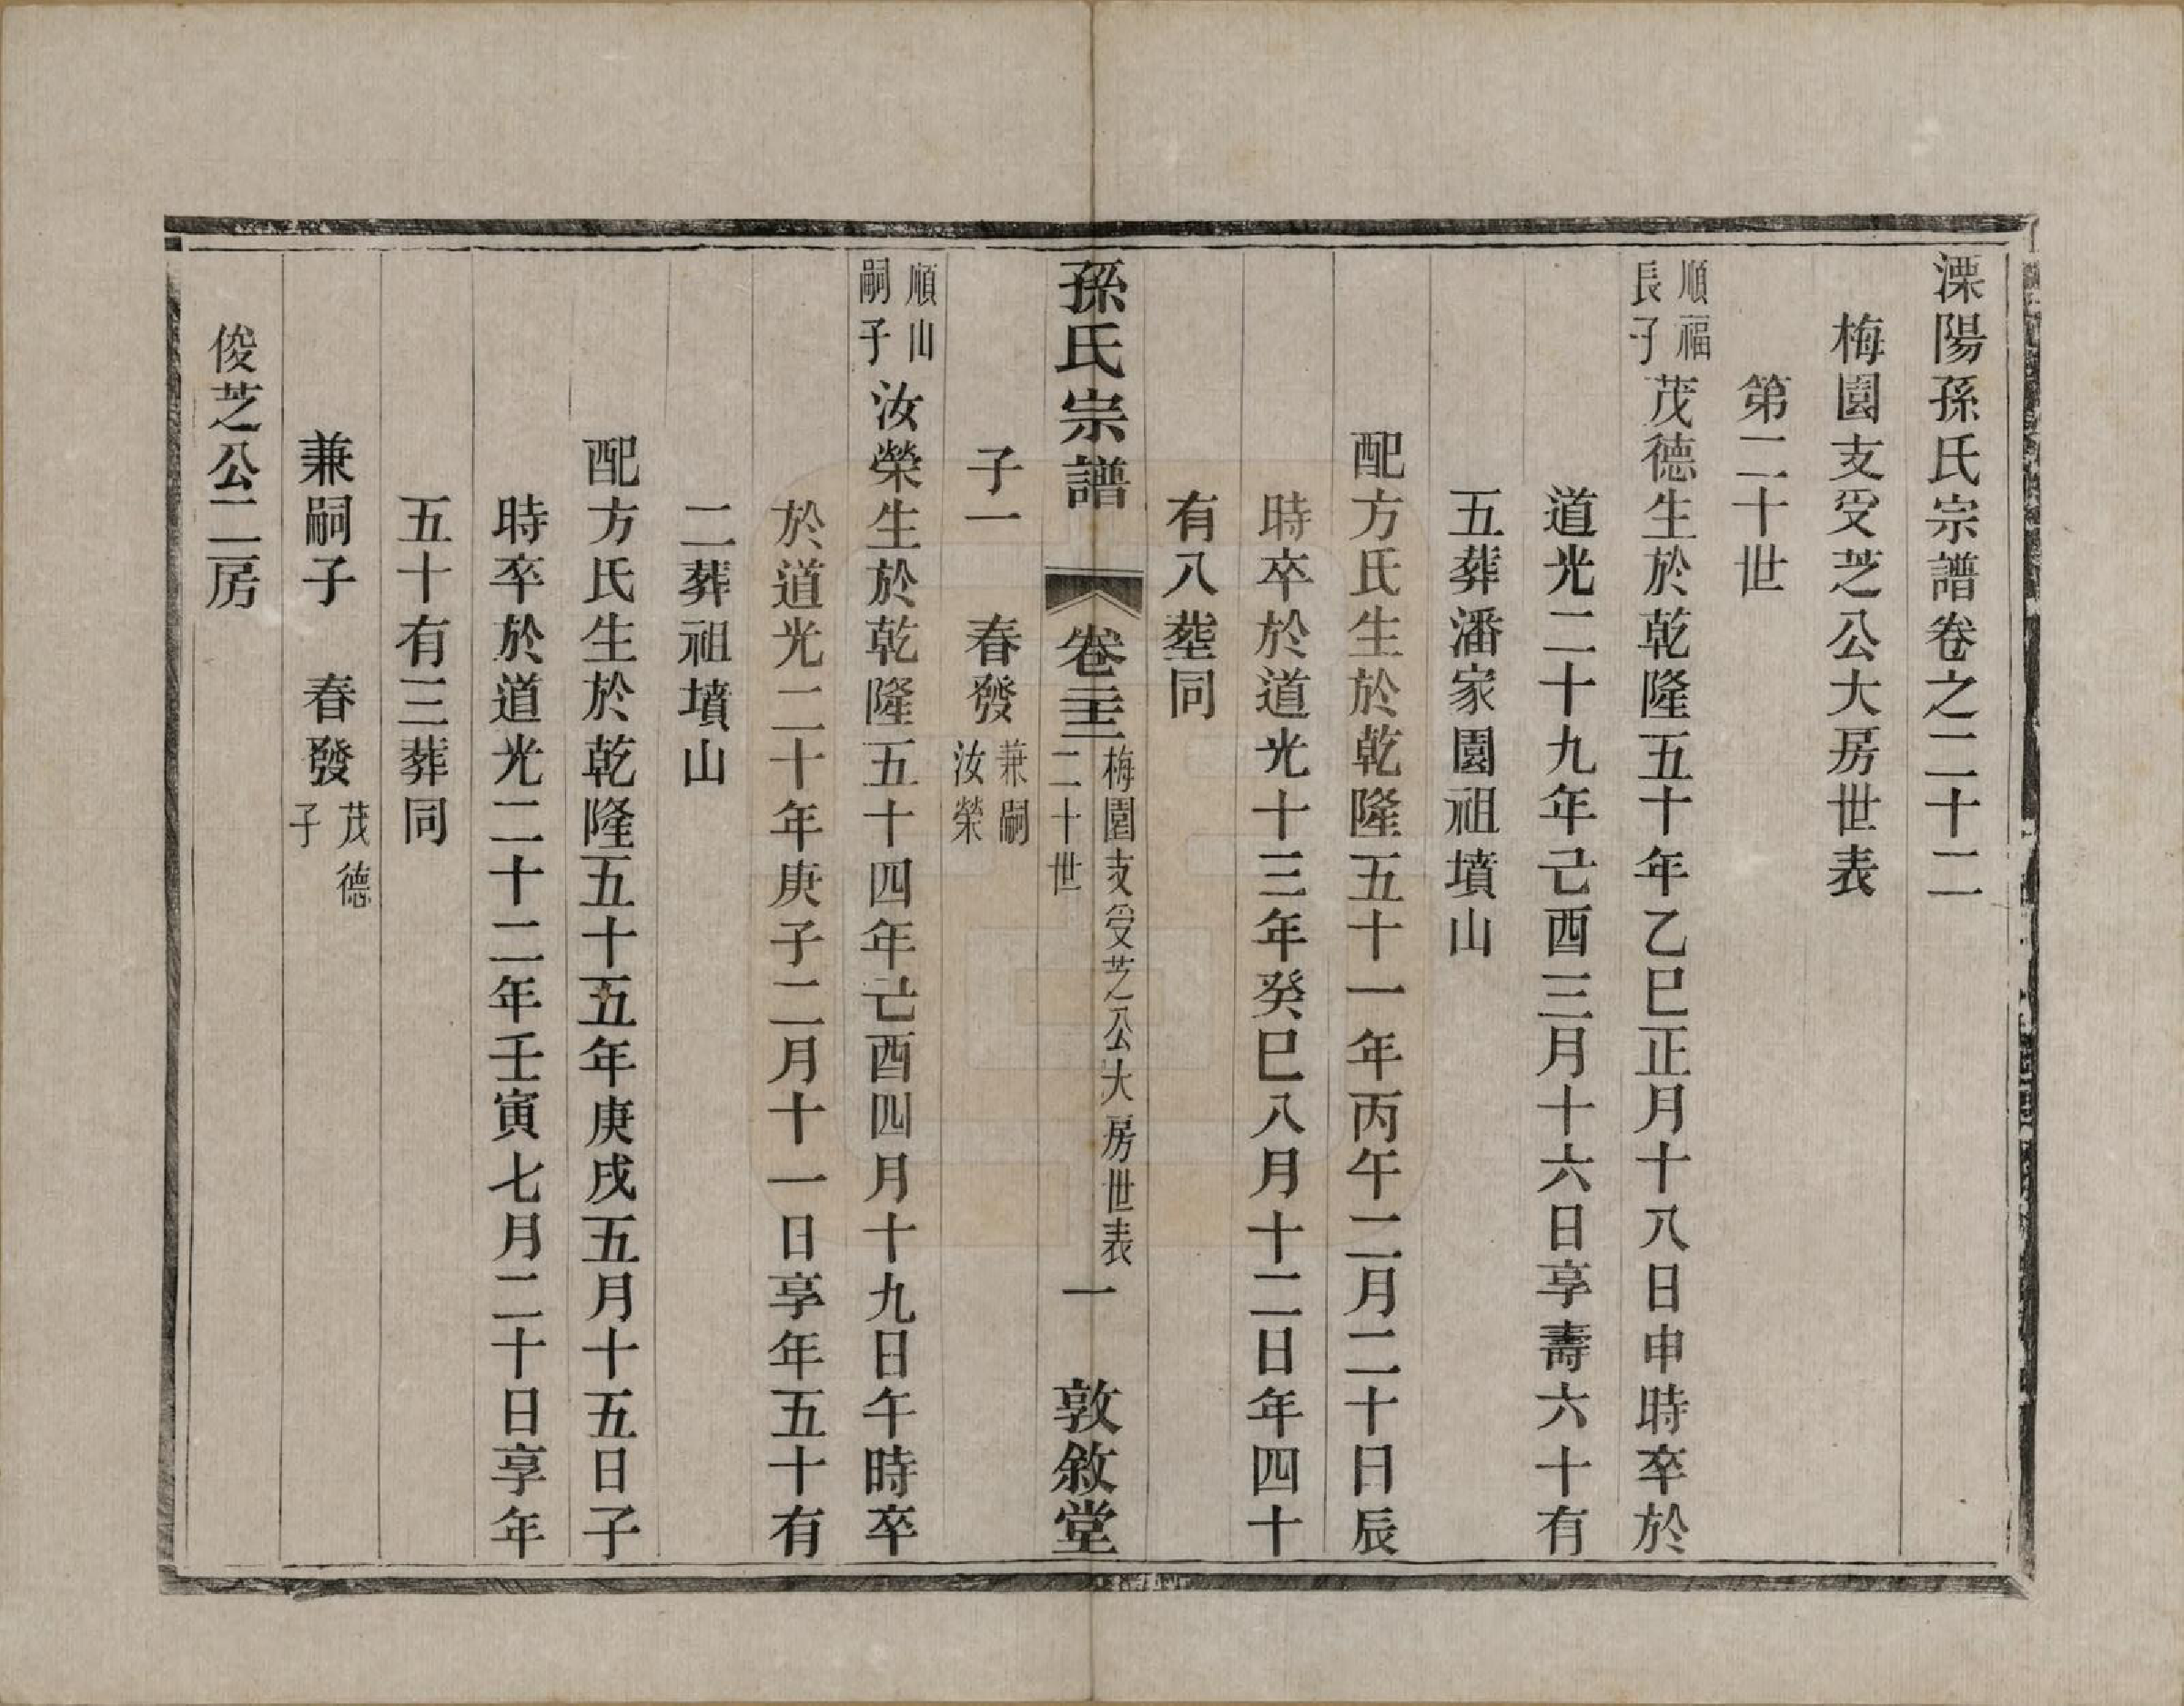 溧陽孫氏宗譜卷之二十二
梅園支受芝公大房世表
第二十世
順福長子茂德生於乾隆五十年乙巳正月十八日申時卒於
道光二十九年己酉三月十六日享壽六十有
五葬潘家園祖墳山
配方氏生於乾隆五十一年丙午二月二十日辰
時卒於道光十三年癸巳八月十二日年四十
有八塟同
孫氏宗譜 卷二十二 梅園支受芝公大房世表 二十世 一 敦敘堂
子一 春發兼嗣汝榮
順山嗣子汝榮生於乾隆五十四年己酉四月十九日午時卒
於道光二十年庚子二月十一日享年五十有
二葬祖墳山
配方氏生於乾隆五十五年庚戌五月十五日子
時卒於道光二十二年壬寅七月二十日享年
五十有三葬同
兼嗣子 春發茂德子
俊芝公二房